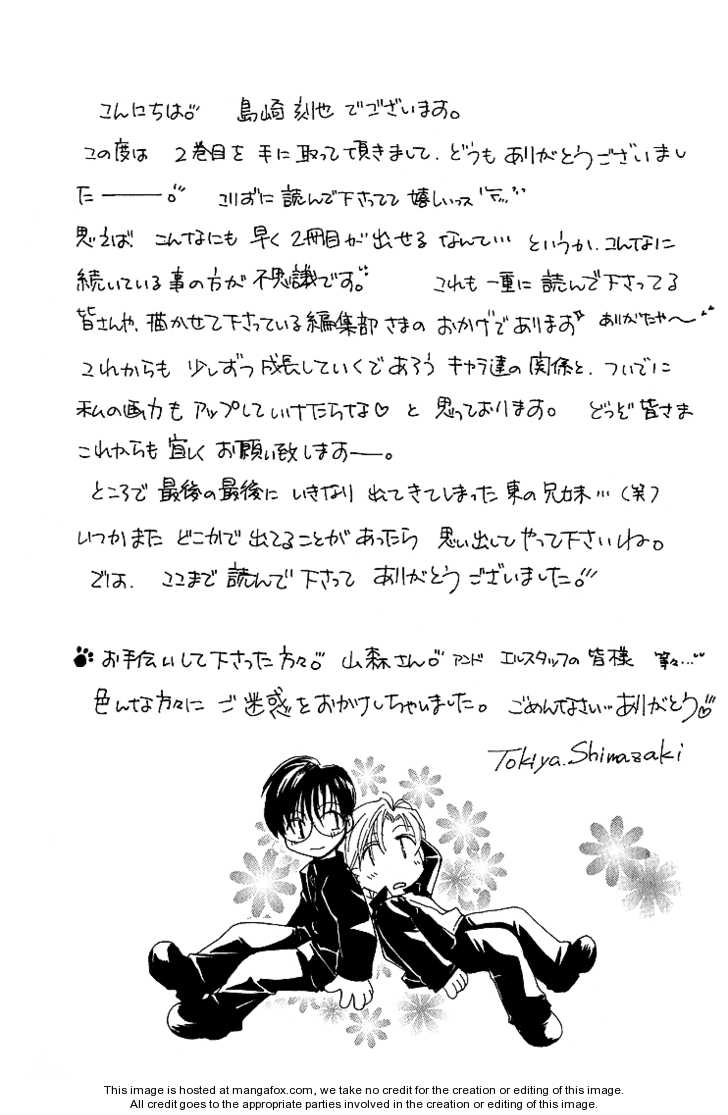 こんにちは。 島崎 刻也 でございます。
この度は 2巻目を 手に取って頂きまして、どうも ありがとうございまし
た———。 こりずに 読んで下さってて 嬉しいっス
思えば、こんなにも 早く 2冊目が 出せる なんて… というか、こんなに
続いている 事の方が 不思議です。 これも 一重に 読んで下さってる
皆さんや、描かせて下さっている 編集部 さまの おかげであります ありがたや〜
これからも 少しずつ 成長していくであろう キャラ達の 関係と、ついでに
私の画力も アップして いけたらな♡ と 思っております。 どうぞ 皆さま
これからも 宜しく お願い致します—。
ところで 最後の最後に いきなり 出てきてしまった 東の 兄妹…(笑)
いつかまた どこかで 出てることがあったら 思い出して やって下さいね。
では、ここまで 読んで 下さって ありがとう ございました。!!!
お手伝いして下さった 方々。 山森さん。 アンド エルスタッフの 皆様 等々…
色んな方々に ご迷惑を おかけしちゃいました。 ごめんなさい…ありがとう♡
Tokiya.Shimazaki
This image is hosted at mangafox.com, we take no credit for the creation or editing of this image.
All credit goes to the appropriate parties involved in the creation or editing of this image.